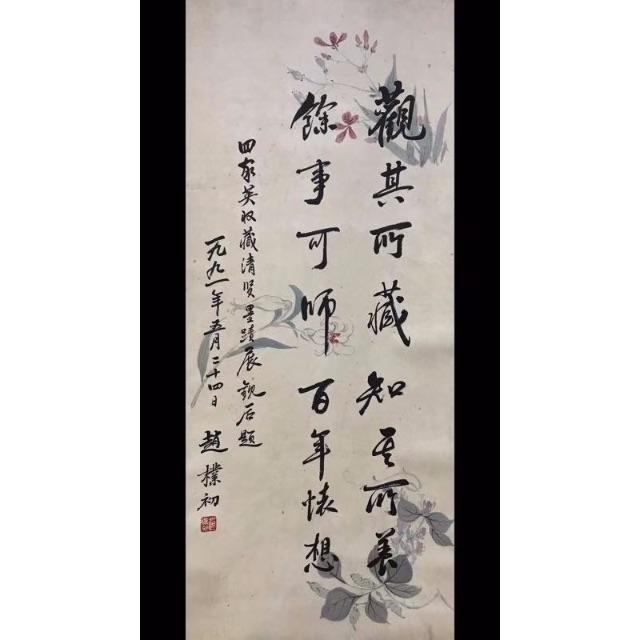 觀其所藏知其所養
餘事可師百年懷想
田家英收藏清賢墨蹟展觀后題
一九九一年五月二十四日
趙樸初